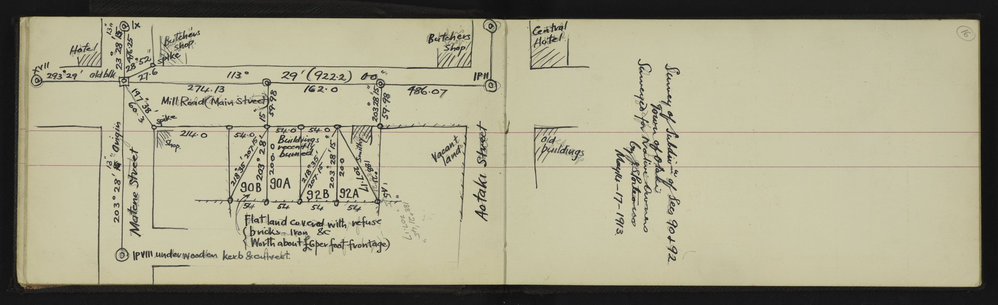 IX
Hotel
Butchers
Shop
spike
23° 28' 15"
476.25
28° 52'
27.6
Butchers
Shop
Central
Hotel
XVII
293° 29' old blk
113° 29' (922.2) 00"
IPII
274.13
162.0
486.07
Mill Road (Main Street)
197° 38'
60.3
spike
59.98
15"
203 28 15"
59.98
214.0
54.0
54.0
54.0
Shop
Buildings
recently
burned
Vacant
land
old
buildings
203° 28' 15" Origin
Matene Street
218° 35' 207.15
203° 28'
200.0
218° 35'
207.15
203° 28' 15"
200
207.17
90B
90A
92B
92A
54
54
54
54
Otaki Street
Flat land covered with refuse
(bricks Iron &c
Worth about £6 per foot frontage)
IPVIII under wooden kerb & culvert.
Survey of Subdivn of Secs 90 & 92
Town of Otaki
Surveyed for
by
1913